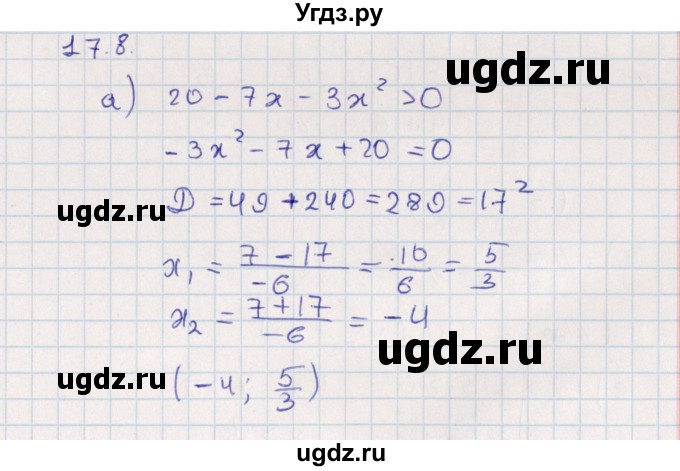 Угдз.ру
17.8.
а) 20 - 7x - 3x² > 0
-3x² - 7x + 20 = 0
ugdz.ru ugdz.ru
Д = 49 + 240 = 289 = 17²
x₁ = (7 - 17)/(-6) = 10/6 = 5/3
x₂ = (7 + 17)/(-6) = -4
ugdz.ru ugdz.ru
(-4; 5/3)
ugdz.ru